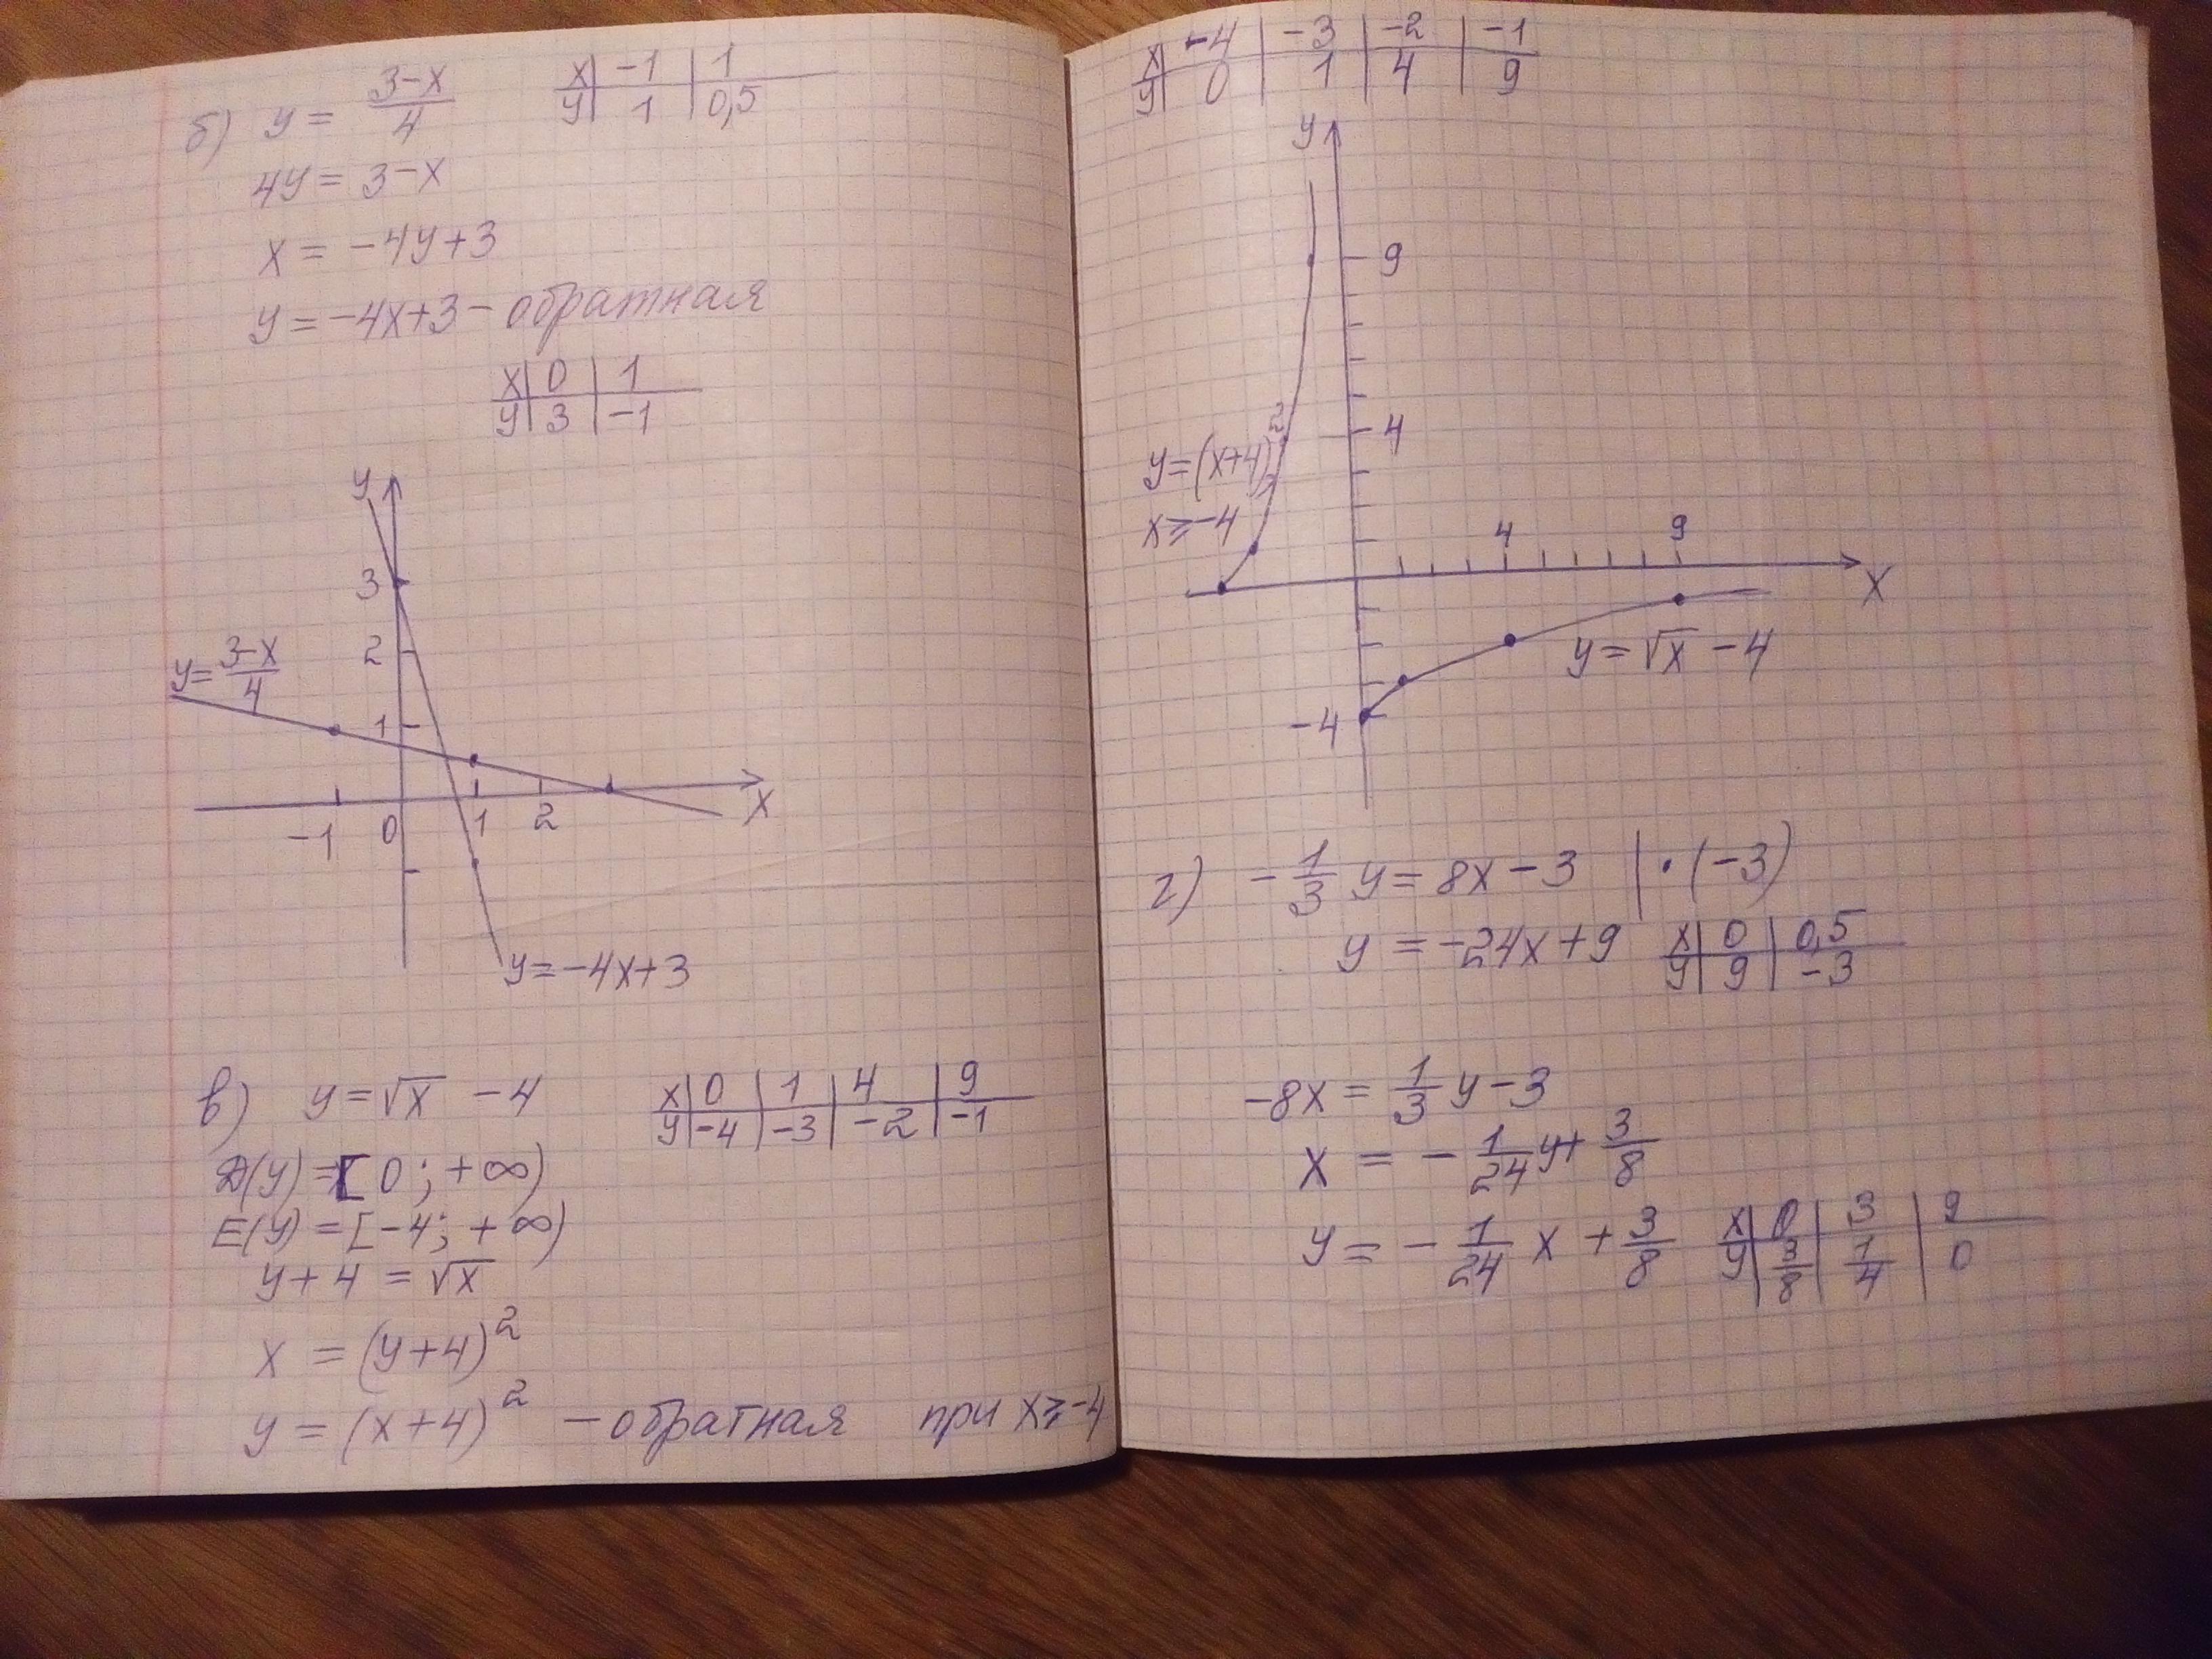 б) y = (3-x)/4   x | -1 | 1
y | 1 | 0,5
4y = 3-x
x = -4y+3
y = -4x+3 - обратная
x | 0 | 1
y | 3 | -1
y
3
2
y = (3-x)/4
1
-1 0 1 2 x
y = -4x+3
в) y = √x - 4   x | 0 | 1 | 4 | 9
y | -4 | -3 | -2 | -1
D(y) = [0; +∞)
E(y) = [-4; +∞)
y + 4 = √x
x = (y+4)²
y = (x+4)² - обратная при x ≥ -4
x | -4 | -3 | -2 | -1
y | 0 | 1 | 4 | 9
y
9
4
y = (x+4)²,
x ≥ -4
4 9
x
y = √x - 4
-4
г) -1/3 y = 8x - 3 | · (-3)
y = -24x + 9   x | 0 | 0,5
y | 9 | -3
-8x = 1/3 y - 3
x = -1/24 y + 3/8
y = -1/24 x + 3/8   x | 0 | 3 | 9
y | 3/8 | 1/4 | 0